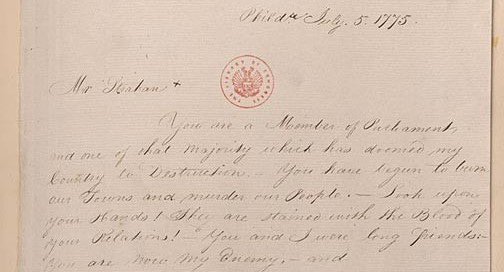 Philda July. 5. 1775.
THE LIBRARY OF CONGRESS
Mr Strahan +
You are a Member of Parliament,
and one of that Majority which has doomed my
Country to Destruction. – You have begun to burn
our Towns and murder our People. – Look upon
your Hands! They are stained with the Blood of
your Relations! – You and I were long friends: –
You are now my Enemy, – and